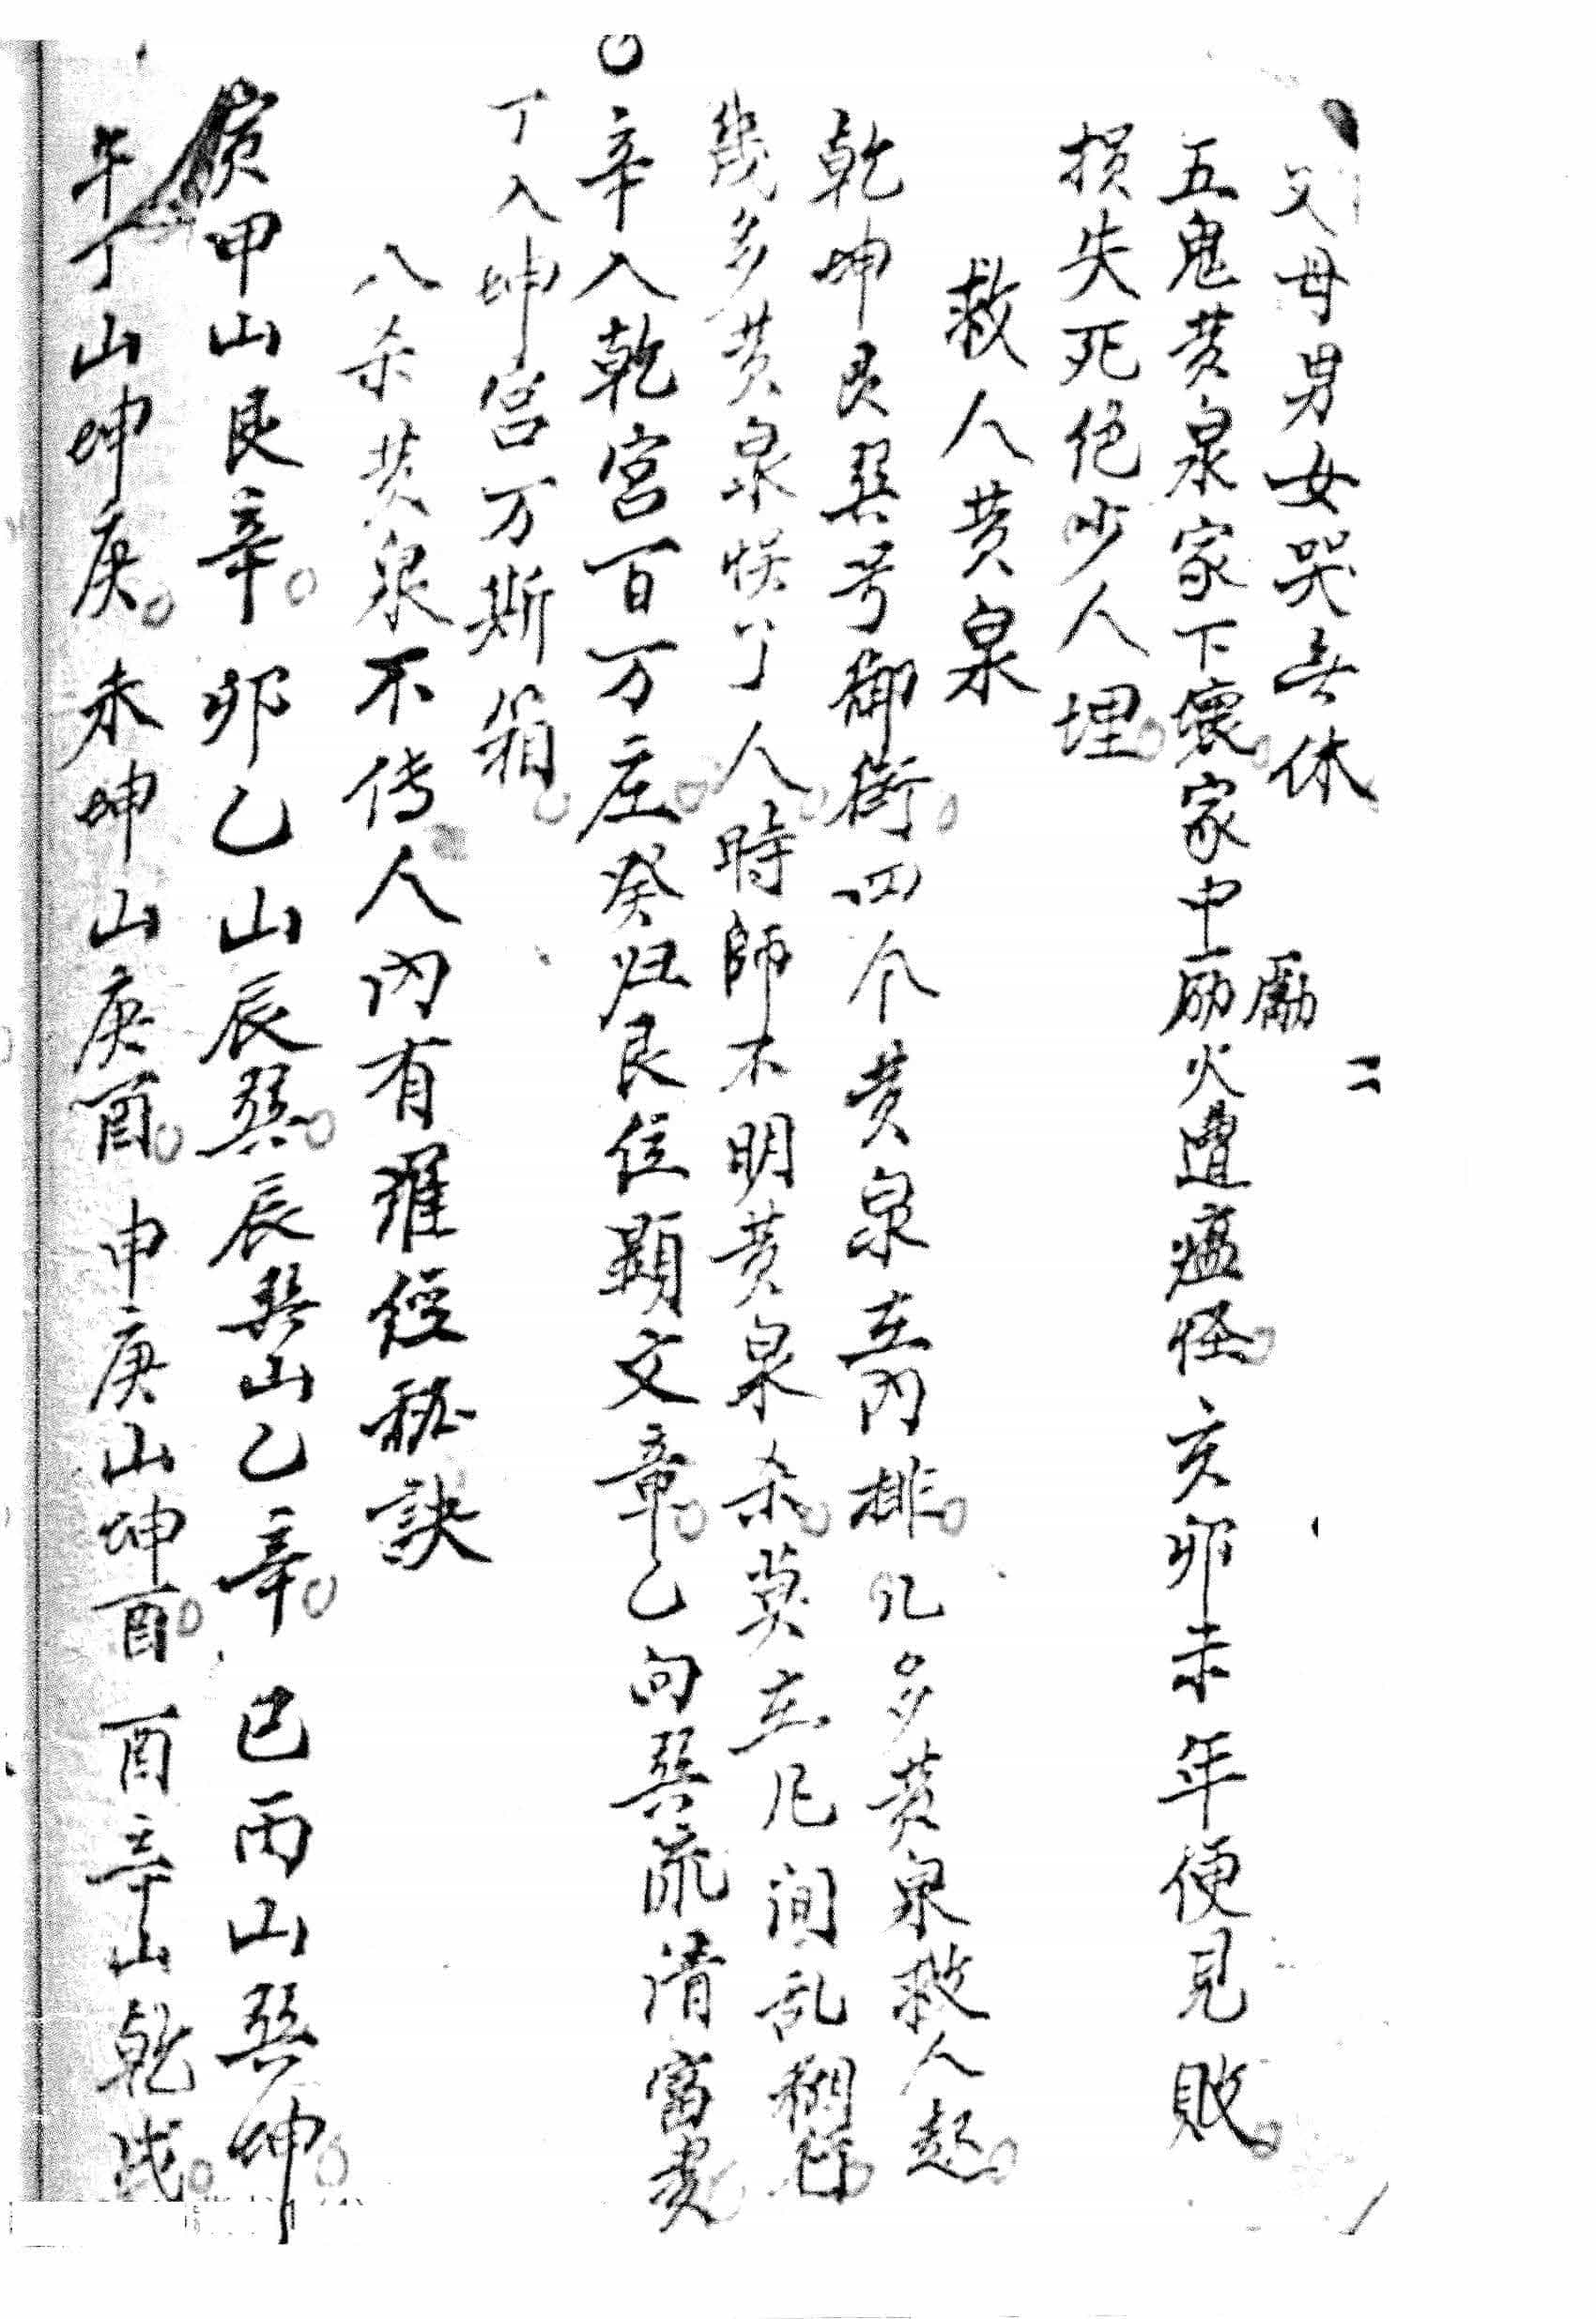 父母男女哭无休
二
五鬼黄泉家下壞家中励火遭瘟怪亥卯未年便見敗
勵
损失死绝少人埋
救人黄泉
乾坤艮巽号御街四个黄泉立内排几多黄泉救人起
幾多黄泉悮了人時師不明黄泉杀莫立凡间乱糊行
辛入乾宫百万庄癸归艮位顕文章乙向巽流清富贵
丁入坤宫万斯箱
八杀黄泉不传人内有羅经秘訣
寅甲山艮辛卯乙山辰巽辰巽山乙辛巳丙山巽坤
午丁山坤庚未坤山庚酉申庚山坤酉酉辛山乾戌